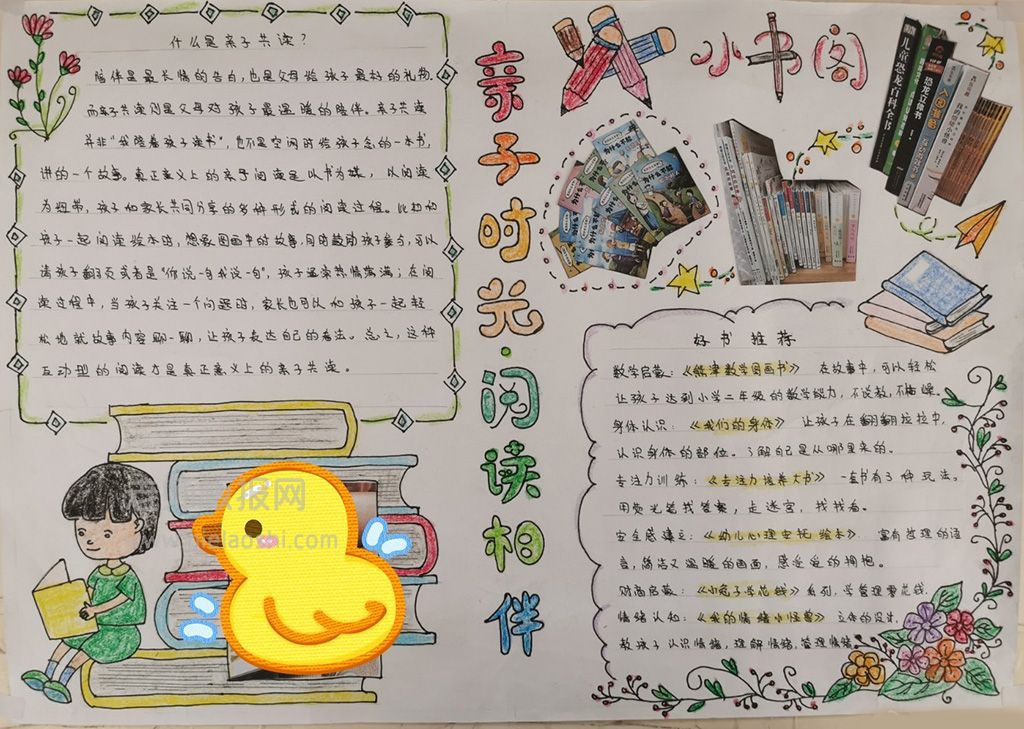 什么是亲子共读？
陪伴是最长情的告白，也是父母给孩子最好的礼物。
而亲子共读则是父母对孩子最温暖的陪伴。亲子共读
并非“我陪着孩子读书”，也不是空闲时给孩子念的一本书，
讲的一个故事。真正意义上的亲子阅读是以书为媒，以阅读
为纽带，孩子和家长共同分享的多种形式的阅读过程。比如和
孩子一起阅读绘本时，想象图画中的故事，同时鼓励孩子参与，可以
请孩子翻页或者是“你说一句我说一句”，孩子通常热情满满；在阅
读过程中，当孩子关注一个问题时，家长也可以和孩子一起轻
松地就故事内容聊一聊，让孩子表达自己的看法。总之，这种
互动型的阅读才是真正意义上的亲子共读。
亲子时光·阅读相伴
小书阁
儿童恐龙百科全书
恐龙立体书
好书推荐
数学启蒙：《熊津数学图画书》 在故事中，可以轻松
让孩子达到小学二年级的数学能力，不说教，不枯燥。
身体认识：《我们的身体》 让孩子在翻翻拉拉中，
认识身体的部位。了解自己是从哪里来的。
专注力训练：《专注力培养大书》 一套书有3种玩法。
用荧光笔找答案，走迷宫，找找看。
安全感建立：《幼儿心理安抚绘本》 富有哲理的语
言，简洁又温暖的画面，感受爱的拥抱。
财商启蒙：《小兔子学花钱》系列，学管理零花钱。
情绪认知：《我的情绪小怪兽》 立体的设计，
教孩子认识情绪，理解情绪，管理情绪
报网